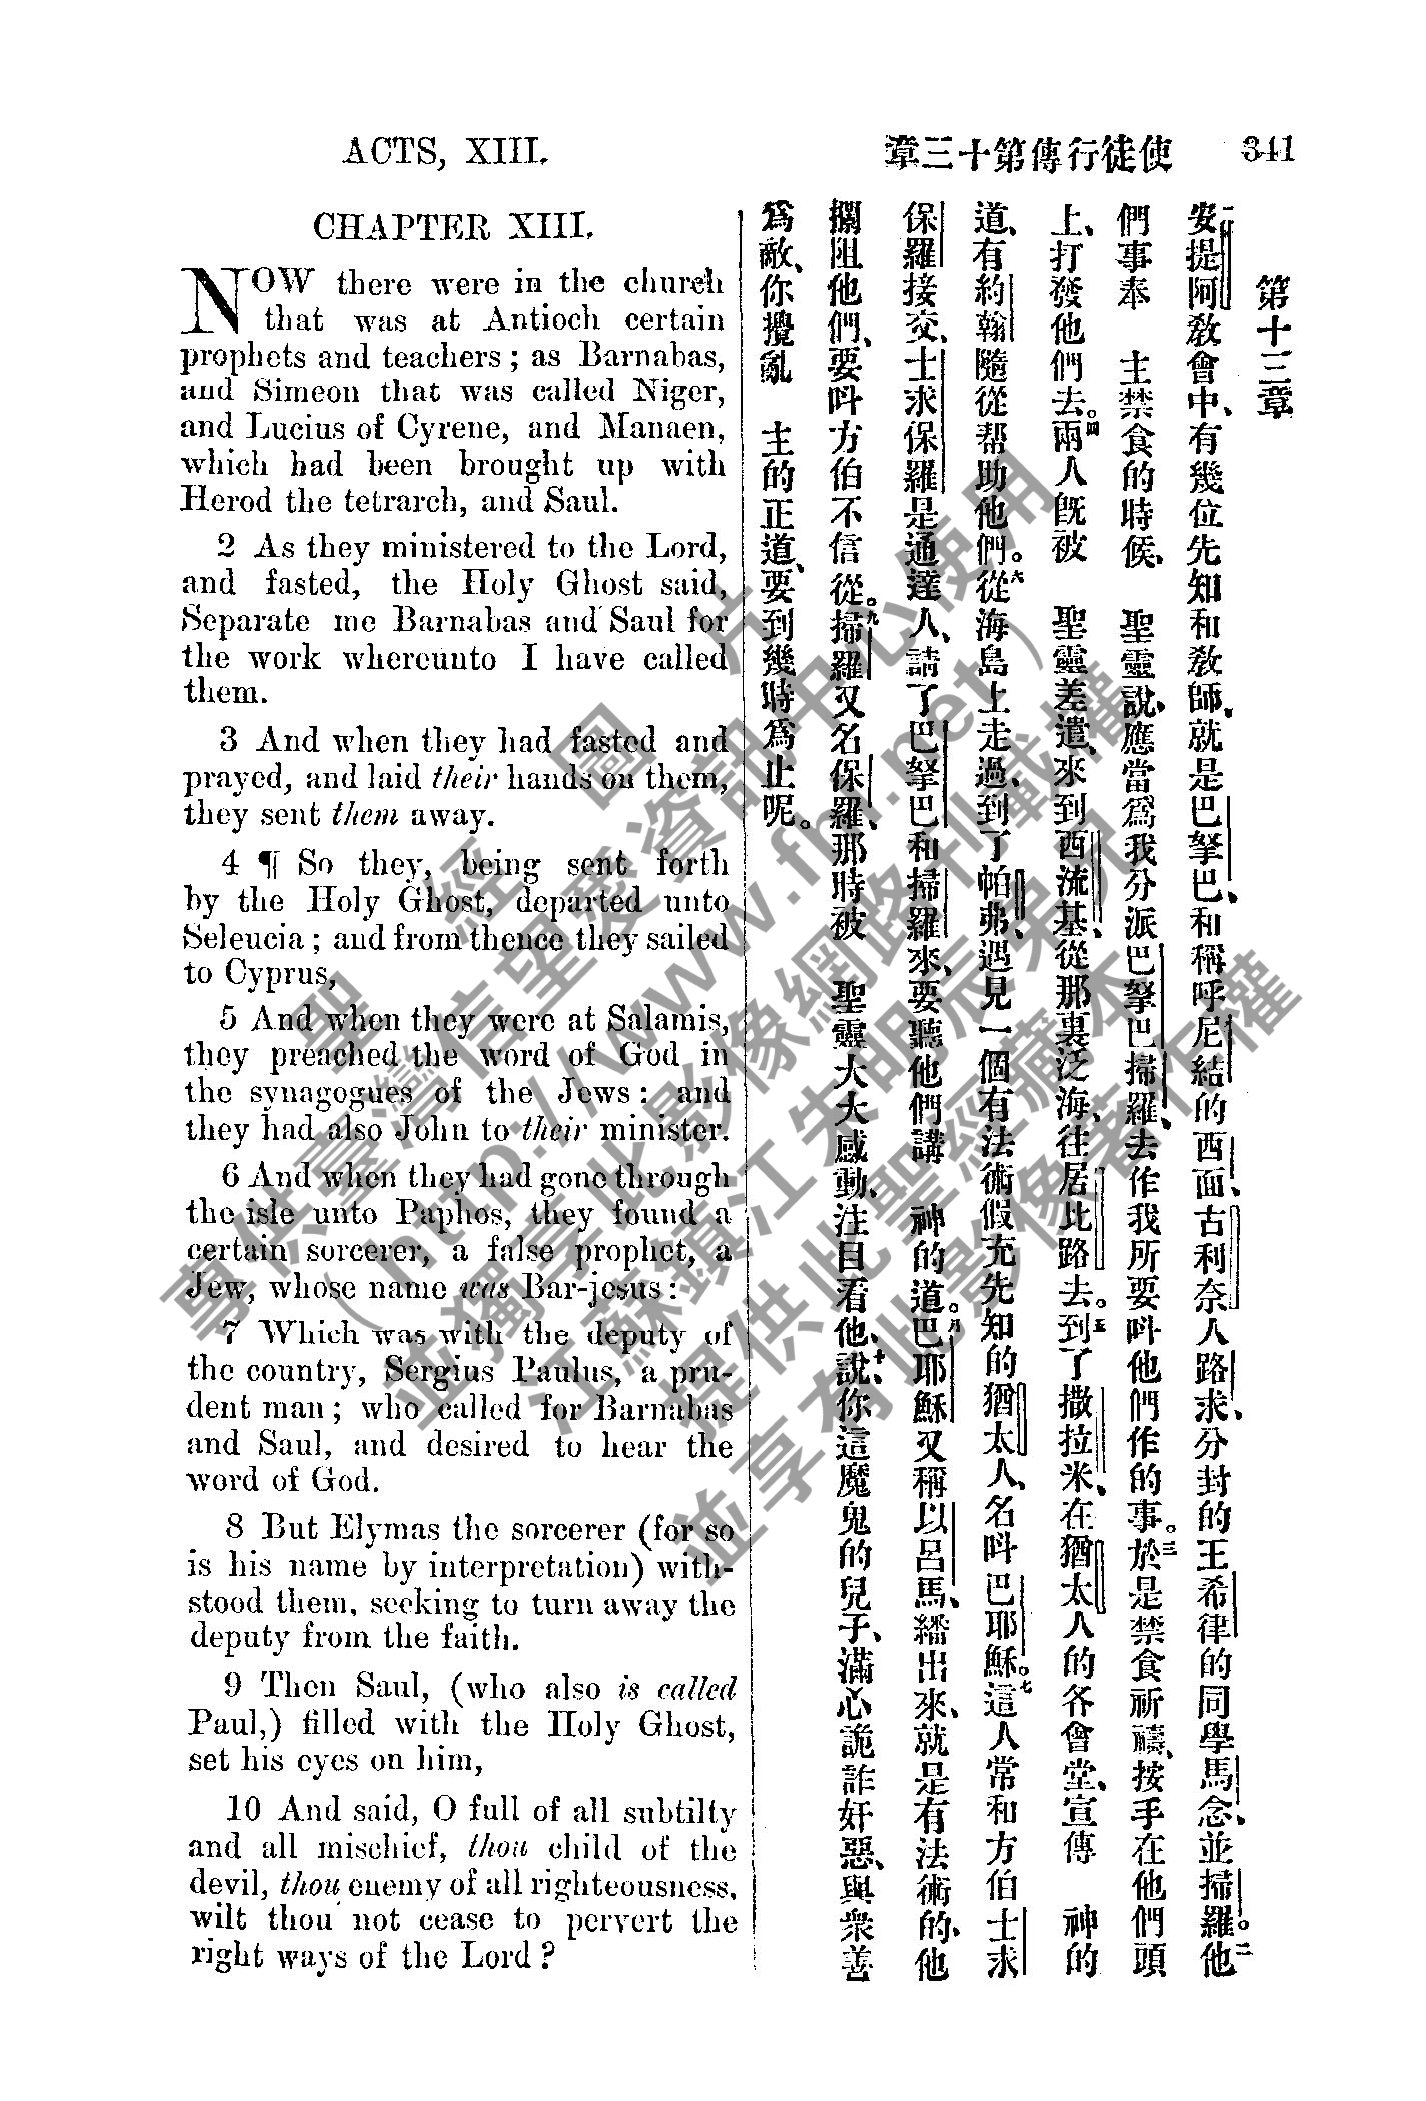 ACTS, XIII.
使徒行傳第十三章 341
CHAPTER XIII.
NOW there were in the church
that was at Antioch certain
prophets and teachers; as Barnabas,
and Simeon that was called Niger,
and Lucius of Cyrene, and Manaen,
which had been brought up with
Herod the tetrarch, and Saul.
2 As they ministered to the Lord,
and fasted, the Holy Ghost said,
Separate me Barnabas and Saul for
the work whereunto I have called
them.
3 And when they had fasted and
prayed, and laid their hands on them,
they sent them away.
4 ¶ So they, being sent forth
by the Holy Ghost, departed unto
Seleucia; and from thence they sailed
to Cyprus,
5 And when they were at Salamis,
they preached the word of God in
the synagogues of the Jews: and
they had also John to their minister.
6 And when they had gone through
the isle unto Paphos, they found a
certain sorcerer, a false prophet, a
Jew, whose name was Bar-jesus:
7 Which was with the deputy of
the country, Sergius Paulus, a pru-
dent man; who called for Barnabas
and Saul, and desired to hear the
word of God.
8 But Elymas the sorcerer (for so
is his name by interpretation) with-
stood them, seeking to turn away the
deputy from the faith.
9 Then Saul, (who also is called
Paul,) filled with the Holy Ghost,
set his eyes on him,
10 And said, O full of all subtilty
and all mischief, thou child of the
devil, thou enemy of all righteousness,
wilt thou not cease to pervert the
right ways of the Lord?
第十三章
一安提阿敎會中、有幾位先知和敎師、就是巴拏巴、和稱呼尼結的西面、古利奈人路求、分封的王希律的同學馬念、並掃羅。二他
們事奉 主禁食的時候、 聖靈說、應當爲我分派巴拏巴掃羅、去作我所要呌他們作的事。三於是禁食祈禱、按手在他們頭
上、打發他們去。四兩人旣被 聖靈差遣、來到西流基、從那裏泛海、往居比路去。五到了撒拉米、在猶太人的各會堂、宣傳 神的
道、有約翰隨從帮助他們。六從海島上走過、到了帕弗、遇見一個有法術假充先知的猶太人、名呌巴耶穌。七這人常和方伯士求
保羅接交、士求保羅是通達人、請了巴拏巴和掃羅來、要聽他們講 神的道。八巴耶穌又稱以呂馬、繙出來、就是有法術的、他
攔阻他們、要呌方伯不信從。九掃羅又名保羅、那時被 聖靈大大感動、注目看他、十說、你這魔鬼的兒子、滿心詭詐奸惡、與衆善
爲敵、你攪亂 主的正道、要到幾時爲止呢。
聖經圖片
享供臺灣信望愛資訊中心使用
(http://www.fhl.net)
並獨享此影像網路刊載權
江蘇鎮江朱明辰弟兄
提供此聖經藏本
並享有此影像著作權